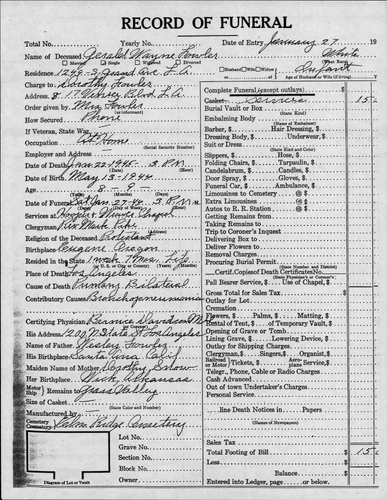 RECORD OF FUNERAL
Total No. Yearly No. Date of Entry January 27 19
Name of Deceased Gerald Wayne Fowler White
Married Single Widowed Divorced Infant
Residence S. Grand Ave L.A. Husband Wife Widow of
Charge to Dorothy Fowler Age of Husband or Wife (if living) Years
Address Blvd. L.A. Complete Funeral (except outlays) $
Order given by Mrs Fowler Casket Services $ 15
How Secured Phone Burial Vault or Box
(State Kind)
If Veteran, State War Embalming Body
(Name of Embalmer)
Occupation At Home Barber, $ Hair Dressing, $
(Social Security Number)
Employer and Address Dressing Body, $ Underwear, $
Date of Death Jan 22 1945 3 P.M. Suit or Dress
Date of Birth May 13 1944 Slippers, $ Hose, $
Age 8 9 Folding Chairs, $ Tarpaulin, $
Candelabrum, $ Candles, $
Date of Funeral Sat Jan 27 3 P.M. Door Spray, $ Gloves, $
Services at Chapel Funeral Car, $ Ambulance, $
Clergyman Rev Mark Limousines to Cemetery @ $
Extra Limousines @ $
Religion of the Deceased Protestant Autos to R. R. Station @ $
Getting Remains from
Birthplace Eugene Oregon Taking Remains to
Resided in the State 1 week Life Trip to Coroner's Inquest
(In U. S. or City or County) Delivering Box to
Place of Death Los Angeles Deliver Flowers to
Cause of Death Primary Bilateral Removal Charges
Contributory Causes Bronchopneumonia Procuring Burial Permit
(State Number and District)
Certif. Copies of Death Certificates No.
(State Physician's or Coroner's)
Certifying Physician Bernice Davidson MD Pall Bearer Service, $ Use of Chapel, $
His Address 200 N State St Los Angeles Gross Total for Sales Tax $
Name of Father Wesley Fowler Outlay for Lot $
His Birthplace Santa Ana Calif Cremation
Maiden Name of Mother Dorothy Snow Flowers, $ Palms, $ Matting, $
Her Birthplace Arkansas Rental of Tent, $ of Temporary Vault, $
Motor Ship Remains to Grass Valley Opening of Grave or Tomb
Size of Casket Lining Grave, $ Lowering Device, $
(State Color and Number) Outlay for Shipping Charges
Manufactured by Clergyman, $ Singers, $ Organist, $
Cemetery Crematory Palm Ridge Cemetery Railroad Tickets, $ Aeroplane Service $
Telegr., Phone, Cable or Radio Charges
Cash Advanced
Out of town Undertaker's Charges
Personal Service
line Death Notices in Papers
(Names of Newspapers)
Lot No.
Grave No.
Section No. Sales Tax
Block No. Total Footing of Bill $ 15
Owner Less
Balance
Diagram of Lot or Vault Entered into Ledger, page or below.